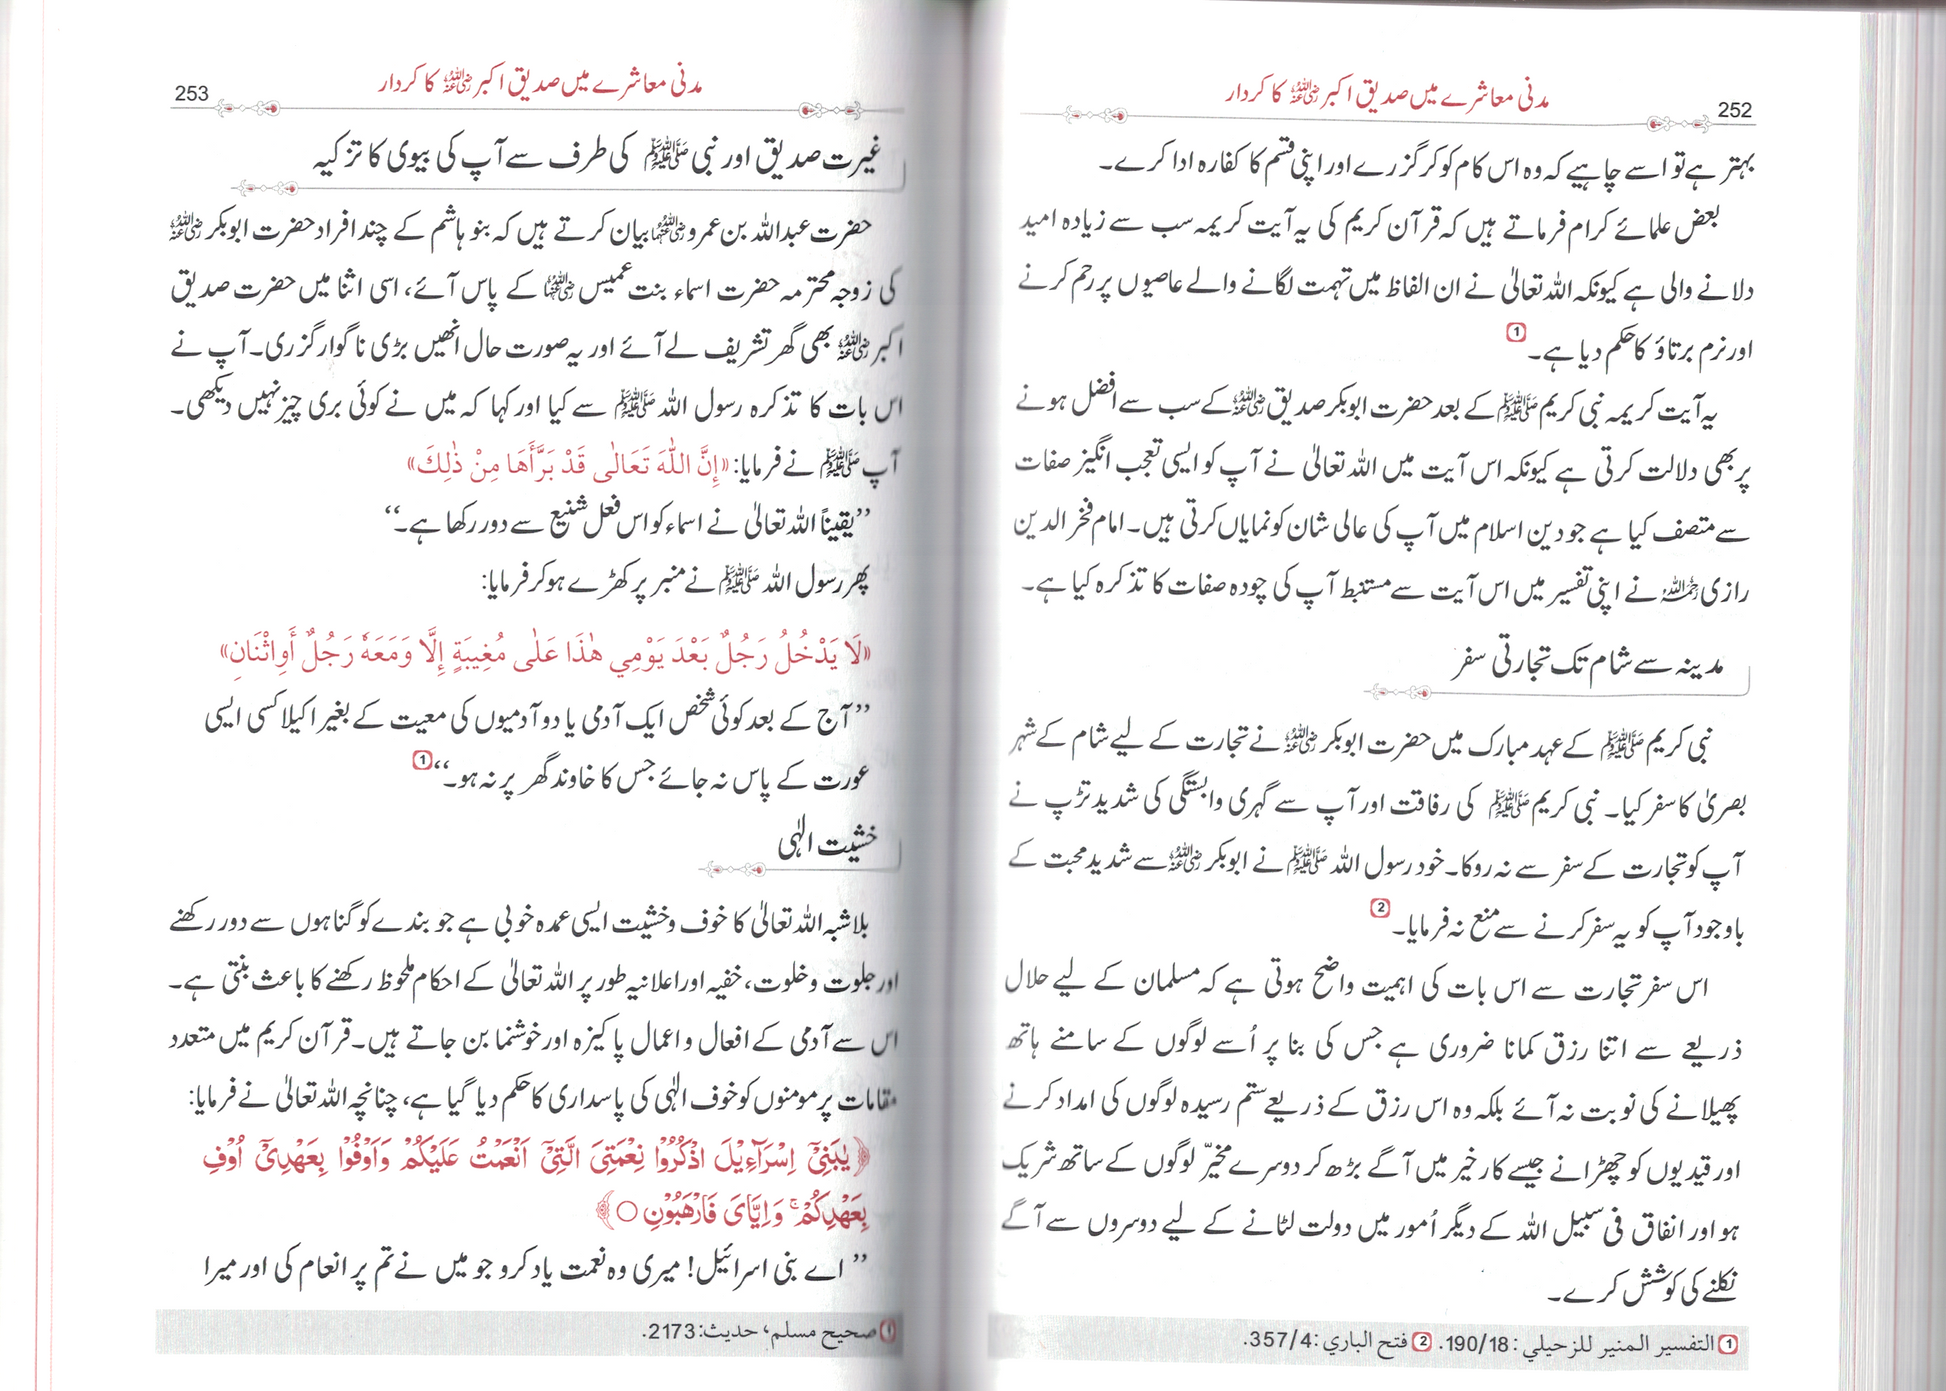 252
مدنی معاشرے میں صدیق اکبر رضی اللہ عنہ کا کردار
بہتر ہے تو اسے چاہیے کہ وہ اس کام کو کر گزرے اور اپنی قسم کا کفارہ ادا کرے۔
بعض علمائے کرام فرماتے ہیں کہ قرآن کریم کی یہ آیت کریمہ سب سے زیادہ امید
دلانے والی ہے کیونکہ اللہ تعالیٰ نے ان الفاظ میں تہمت لگانے والے عاصیوں پر رحم کرنے
اور نرم برتاؤ کا حکم دیا ہے۔ 1
یہ آیت کریمہ نبی کریم ﷺ کے بعد حضرت ابوبکر صدیق رضی اللہ عنہ کے سب سے افضل ہونے
پر بھی دلالت کرتی ہے کیونکہ اس آیت میں اللہ تعالیٰ نے آپ کو ایسی تعجب انگیز صفات
سے متصف کیا ہے جو دین اسلام میں آپ کی عالی شان کو نمایاں کرتی ہیں۔ امام فخر الدین
رازی رحمہ اللہ نے اپنی تفسیر میں اس آیت سے مستنبط آپ کی چودہ صفات کا تذکرہ کیا ہے۔
مدینہ سے شام تک تجارتی سفر
نبی کریم ﷺ کے عہد مبارک میں حضرت ابوبکر رضی اللہ عنہ نے تجارت کے لیے شام کے شہر
بصریٰ کا سفر کیا۔ نبی کریم ﷺ کی رفاقت اور آپ سے گہری وابستگی کی شدید تڑپ نے
آپ کو تجارت کے سفر سے نہ روکا۔ خود رسول اللہ ﷺ نے ابوبکر رضی اللہ عنہ سے شدید محبت کے
باوجود آپ کو یہ سفر کرنے سے منع نہ فرمایا۔ 2
اس سفر تجارت سے اس بات کی اہمیت واضح ہوتی ہے کہ مسلمان کے لیے حلال
ذریعے سے اتنا رزق کمانا ضروری ہے جس کی بنا پر اُسے لوگوں کے سامنے ہاتھ
پھیلانے کی نوبت نہ آئے بلکہ وہ اس رزق کے ذریعے ستم رسیدہ لوگوں کی امداد کرنے
اور قیدیوں کو چھڑانے جیسے کار خیر میں آگے بڑھ کر دوسرے مخیّر لوگوں کے ساتھ شریک
ہو اور انفاق فی سبیل اللہ کے دیگر اُمور میں دولت لٹانے کے لیے دوسروں سے آگے
نکلنے کی کوشش کرے۔
1 التفسير المنير للزحيلي: 190/18. 2 فتح الباري: 357/4.
253
مدنی معاشرے میں صدیق اکبر رضی اللہ عنہ کا کردار
غیرت صدیق اور نبی ﷺ کی طرف سے آپ کی بیوی کا تزکیہ
حضرت عبداللہ بن عمرو رضی اللہ عنہما بیان کرتے ہیں کہ بنو ہاشم کے چند افراد حضرت ابوبکر رضی اللہ عنہ
کی زوجہ محترمہ حضرت اسماء بنت عمیس رضی اللہ عنہا کے پاس آئے، اسی اثنا میں حضرت صدیق
اکبر رضی اللہ عنہ بھی گھر تشریف لے آئے اور یہ صورت حال انھیں بڑی ناگوار گزری۔ آپ نے
اس بات کا تذکرہ رسول اللہ ﷺ سے کیا اور کہا کہ میں نے کوئی بری چیز نہیں دیکھی۔
آپ ﷺ نے فرمایا: «إِنَّ اللّٰهَ تَعَالٰى قَدْ بَرَّأَهَا مِنْ ذٰلِكَ»
’’یقیناً اللہ تعالیٰ نے اسماء کو اس فعل شنیع سے دور رکھا ہے۔‘‘
پھر رسول اللہ ﷺ نے منبر پر کھڑے ہو کر فرمایا:
«لَا يَدْخُلُ رَجُلٌ بَعْدَ يَوْمِي هٰذَا عَلٰى مُغِيبَةٍ إِلَّا وَمَعَهٗ رَجُلٌ أَوِاثْنَانِ»
’’آج کے بعد کوئی شخص ایک آدمی یا دو آدمیوں کی معیت کے بغیر اکیلا کسی ایسی
عورت کے پاس نہ جائے جس کا خاوند گھر پر نہ ہو۔‘‘ 1
خشیت الٰہی
بلاشبہ اللہ تعالیٰ کا خوف و خشیت ایسی عمدہ خوبی ہے جو بندے کو گناہوں سے دور رکھنے
اور جلوت و خلوت، خفیہ اور اعلانیہ طور پر اللہ تعالیٰ کے احکام ملحوظ رکھنے کا باعث بنتی ہے۔
اس سے آدمی کے افعال و اعمال پاکیزہ اور خوشنما بن جاتے ہیں۔ قرآن کریم میں متعدد
مقامات پر مومنوں کو خوف الٰہی کی پاسداری کا حکم دیا گیا ہے، چنانچہ اللہ تعالیٰ نے فرمایا:
﴿يٰبَنِيْٓ اِسْرَآءِيْلَ اذْكُرُوْا نِعْمَتِيَ الَّتِيْٓ اَنْعَمْتُ عَلَيْكُمْ وَاَوْفُوْا بِعَهْدِيْٓ اُوْفِ
بِعَهْدِكُمْ ۚ وَاِيَّايَ فَارْهَبُوْنِ ○﴾
’’ اے بنی اسرائیل! میری وہ نعمت یاد کرو جو میں نے تم پر انعام کی اور میرا
1 صحيح مسلم، حديث: 2173.